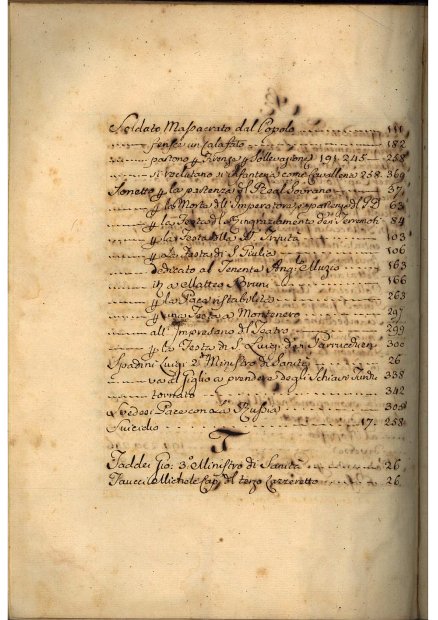 Soldato Massacrato dal Popolo 111
ferisce un Calafato 182
partono p Firenze p Sollevazione 191. 245 — 258
si reclutano d'Infanteria come Cavalleria 258. 369
Sonetto p la partenza del Real Sovrano 37
p la Morte dell'Imperatore, e partenza del 63
p la Festa del Ringraziamento de Terremoti 84
p la Festa della SS. Trinità 103
p la Festa di S. Giulia 106
dedicato al Tenente Ang.lo Mugio 163
in a Matteo Bruni 166
p la Pace ristabilita 263
p una Festa a Montenero 297
all'Impresario del Teatro 299
p la Festa di S. Luigi dei Parrucchieri 300
Spadini Luigi 2.o Ministro di Sanità 26
va al Giglio a prendere degli Schiavi 338
tornato 342
Svedesi Pace con la Russia 305
Suicidio 17. 258
T
Taddei Gio: 3.o Ministro di Sanità 26
Taucci Michele Cap. del terzo Lazzeretto 26